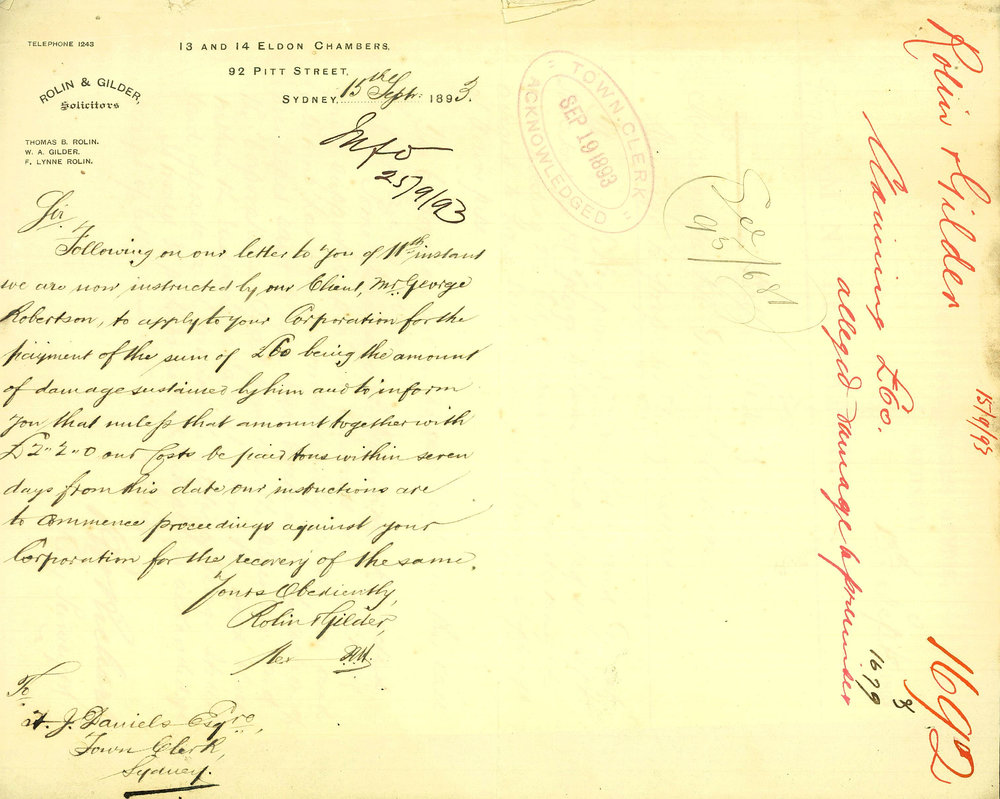 TELEPHONE 1243
13 AND 14 ELDON CHAMBERS,
92 PITT STREET,
SYDNEY, 15th Septr. 1893.
ROLIN & GILDER,
Solicitors
THOMAS B. ROLIN.
W. A. GILDER.
F. LYNNE ROLIN.
25/9/93
Sir
Following on our letter to you of 11th instant
we are now instructed by our Client, Mr. George
Robertson, to apply to your Corporation for the
payment of the sum of £60 being the amount
of damage sustained by him and to inform
you that unless that amount together with
£2"2"0 our Costs be paid to us within seven
days from this date our instructions are
to commence proceedings against your
Corporation for the recovery of the same.
Yours Obediently,
Rolin & Gilder,
To
H. J. Daniels Esqre,
Town Clerk,
Sydney.
TOWN CLERK
SEP 19 1893
ACKNOWLEDGED
93/
Rolin & Gilder
Claiming £60.
alleged damage to premises
15/9/93
1692
1679